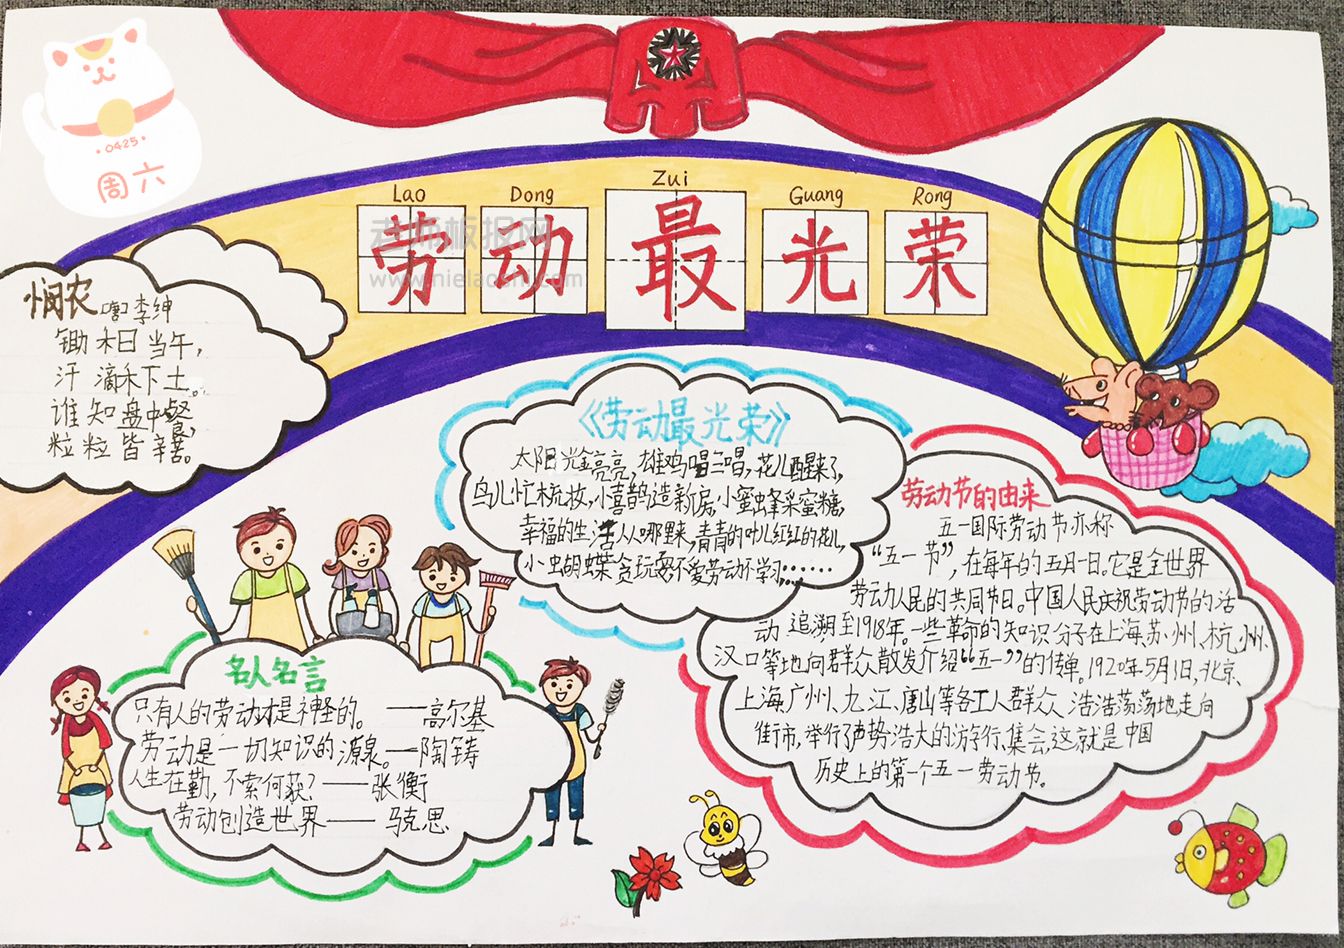 ·0425·
周六
Lao Dong Zui Guang Rong
劳动最光荣
老师板报网
悯农 [唐]李绅
锄禾日当午，
汗滴禾下土。
谁知盘中餐，
粒粒皆辛苦。
《劳动最光荣》
太阳光金亮亮，雄鸡唱三唱，花儿醒来了，
鸟儿忙梳妆，小喜鹊造新房，小蜜蜂采蜜糖，
幸福的生活从哪里来，青青的叶儿红红的花儿，
小虫蝴蝶贪玩耍不爱劳动不学习……
劳动节的由来
五一国际劳动节亦称
“五一节”，在每年的五月一日。它是全世界
劳动人民的共同节日。中国人民庆祝劳动节的活
动追溯至1918年。一些革命的知识分子在上海、苏州、杭州、
汉口等地向群众散发介绍“五一”的传单。1920年5月1日，北京、
上海、广州、九江、唐山等各工人群众浩浩荡荡地走向
街市，举行了声势浩大的游行、集会，这就是中国
历史上的第一个五一劳动节。
名人名言
只有人的劳动才是神怪的。——高尔基
劳动是一切知识的源泉。——陶铸
人生在勤，不索何获？——张衡
劳动创造世界——马克思